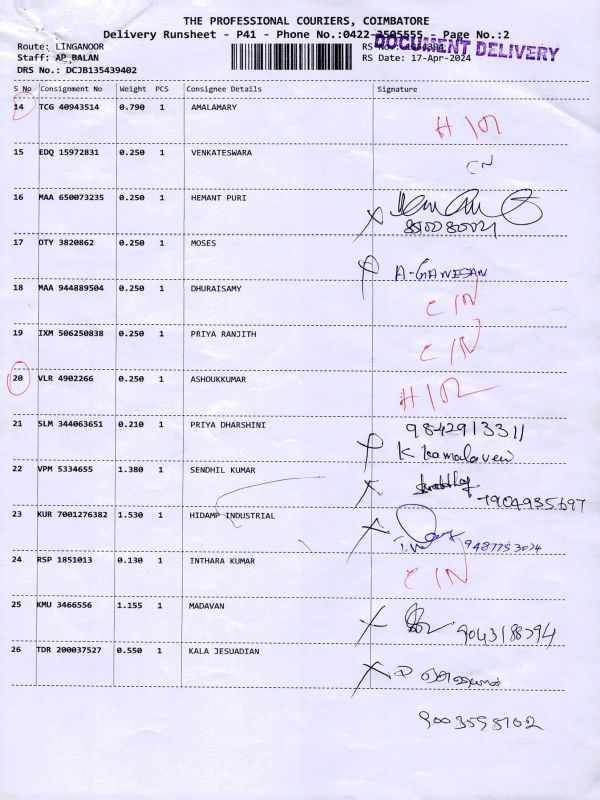 THE PROFESSIONAL COURIERS, COIMBATORE
Delivery Runsheet - P41 - Phone No.:0422-3505555 - Page No.:2
Route: LINGANOOR
DOCUMENT DELIVERY
Staff: AP BALAN RS Date: 17-Apr-2024
DRS No.: DCJB135439402
S No Consignment No Weight PCS Consignee Details Signature
14 TCG 40943514 0.790 1 AMALAMARY
15 EDQ 15972831 0.250 1 VENKATESWARA
CN
16 MAA 650073235 0.250 1 HEMANT PURI
17 OTY 3820862 0.250 1 MOSES
A-GANESAN
18 MAA 944889504 0.250 1 DHURAISAMY
C/N
19 IXM 506250838 0.250 1 PRIYA RANJITH
C/N
20 VLR 4902266 0.250 1 ASHOUKKUMAR
21 SLM 344063651 0.210 1 PRIYA DHARSHINI
9842913311
K kamalaveni
22 VPM 5334655 1.380 1 SENDHIL KUMAR
7904935697
23 KUR 7001276382 1.530 1 HIDAMP INDUSTRIAL
9487753074
24 RSP 1851013 0.130 1 INTHARA KUMAR
C/N
25 KMU 3466556 1.155 1 MADAVAN
9043188794
26 TDR 200037527 0.550 1 KALA JESUADIAN
9003598102